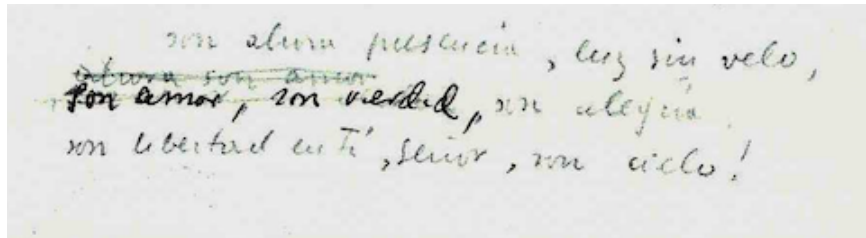 son ahora presencia, luz sin velo,
ahora son amor
son amor, son verdad, son alegría
son libertad en Ti, Señor, son cielo!